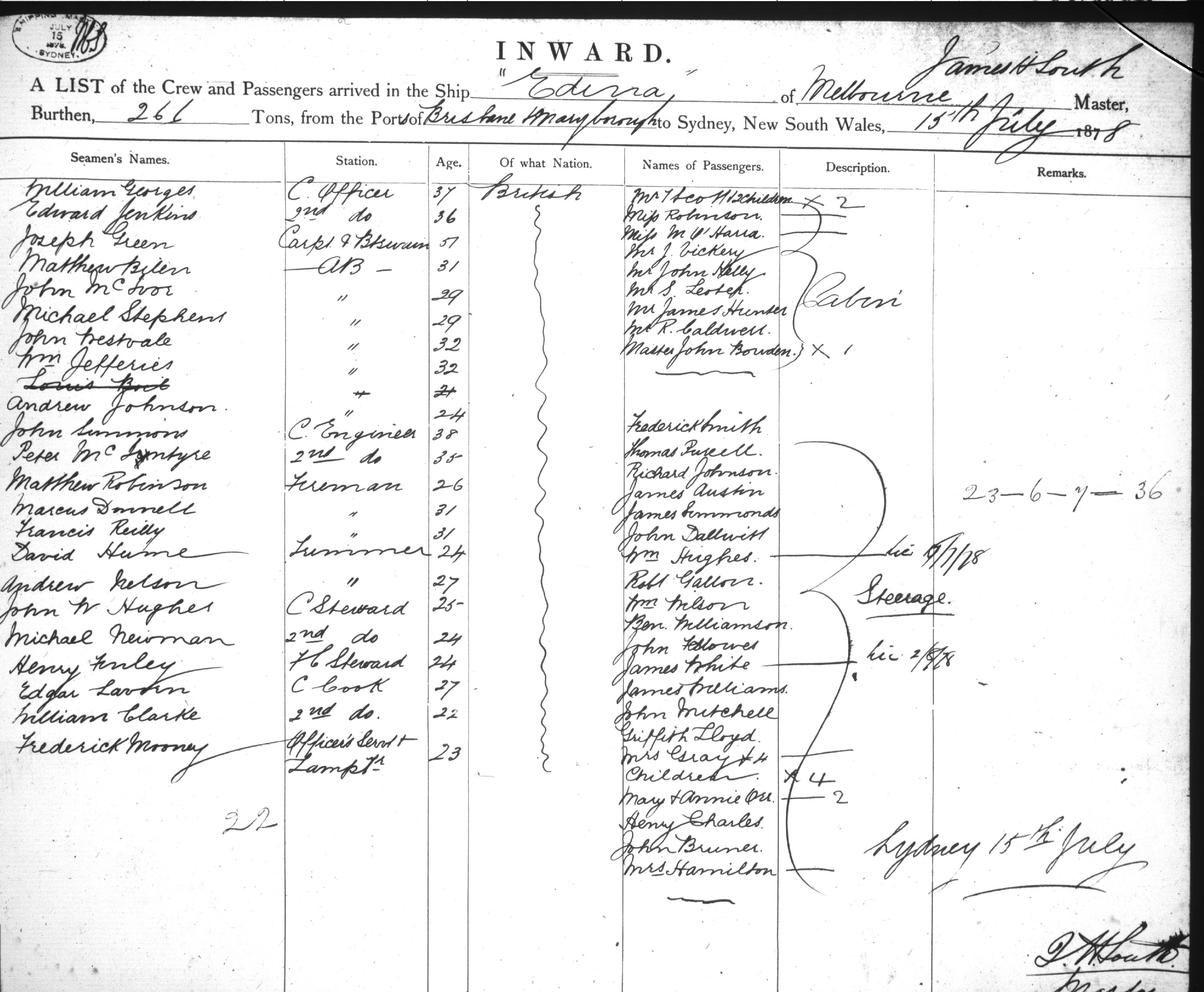 SHIPPING MASTER
JULY
15
1878
SYDNEY
INWARD.
James H South
A LIST of the Crew and Passengers arrived in the Ship "Edina" of Melbourne Master,
Burthen, 261 Tons, from the Ports of Brisbane & Maryborough to Sydney, New South Wales, 15th July 1878
Seamen's Names. Station. Age. Of what Nation. Names of Passengers. Description. Remarks.
William Georges C. Officer 37 British Mr T Scott & 2 children X 2
Edward Jenkins 2nd do 36 Miss Robinson.
Joseph Green Carpt & Botswain 51 Miss M O'Harra.
Matthew AB 31 Mr J. Vickery
John McIvor " 29 Mr John Kelly
Michael Stephens " 29 Mr S. Lester.
John " 32 Mr James Hunter Cabin
Wm Jefferies " 32 Mr R. Caldwell.
Louis 21 Master John Bowden. X 1
Andrew Johnson. " 24
John Simmons C. Engineer 38 Frederick Smith
Peter McIntyre 2nd do 35 Thomas Purcell.
Matthew Robinson Fireman 26 Richard Johnson.
Marcus Donnell " 31 James Austin 23-6-7-36
Francis Reilly " 31 James Simmonds
David Hume Trimmer 24 John Dallwitt
Wm Hughes. lic /7/78
Andrew Nelson " 27 Robt Gallon.
John W Hughes C Steward 25 Wm Wilson Steerage.
Michael Newman 2nd do 24 Ben. Williamson.
Henry Finley F C Steward 24 John Howes
James White lic 2/8/78
Edgar Lavorn C Cook 27 James Williams.
William Clarke 2nd do. 22 John Mitchell
Frederick Mooney Officer's Servt + 23 Griffith Lloyd.
Lamptr Mrs Gray & 4
Children X 4
Mary & Annie Orr. 2
22 Henry Charles.
John Bruner. Sydney 15th July
Mrs Hamilton
J. H. South
Master